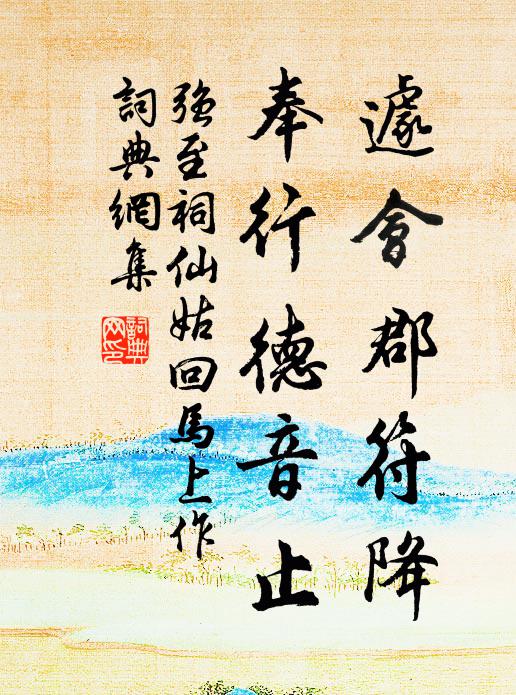 遽會郡符降
奉行德音止
強至祠仙姑回馬上作
詞典網集
詞典網印